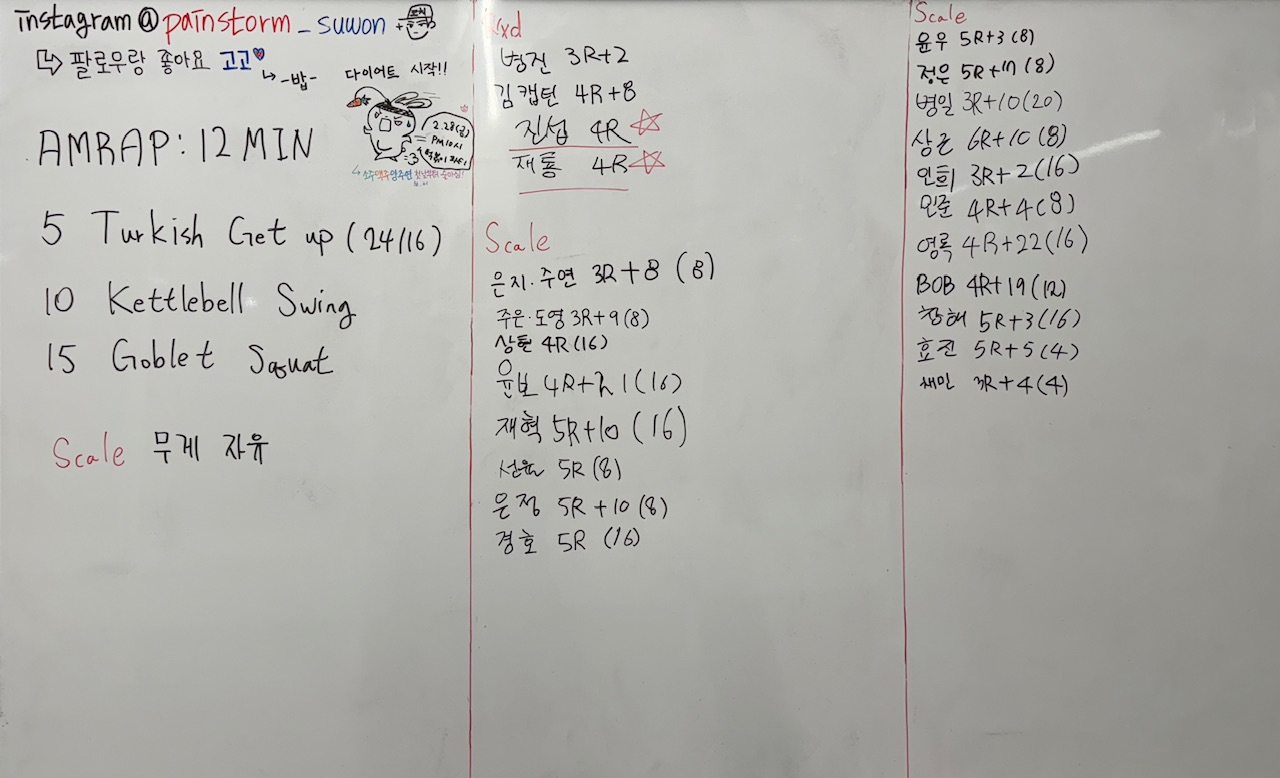 instagram@painstorm_suwon
팔로우랑 좋아요 고고
-밥-
다이어트 시작!!
2.28(금)
PM10시
AMRAP: 12MIN
5 Turkish Get up (24/16)
10 Kettlebell Swing
15 Goblet Squat
Scale 무게 자유
Rxd
병진 3R+2
김캡틴 4R+8
진섭 4R
재룡 4R
Scale
은지·주연 3R+8 (8)
주은·도영 3R+9(8)
상훈 4R(16)
윤보 4R+21(16)
재혁 5R+10 (16)
선율 5R(8)
은정 5R+10(8)
경호 5R (16)
Scale
윤우 5R+3(8)
정은 5R+17(8)
병일 3R+10(20)
상근 6R+10(8)
인희 3R+2(16)
민준 4R+4(8)
영록 4R+22(16)
BOB 4R+19(12)
창해 5R+3(16)
효진 5R+5(4)
채민 3R+4(4)